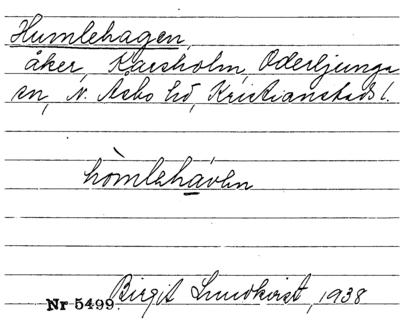 Humlehagen,
åker, Kårsholm, Oderljunga
sn, N. Åsbo hd, Kristianstads l.
hòmlehávən
Birgit Lundkvist, 1938
Nr 5499.